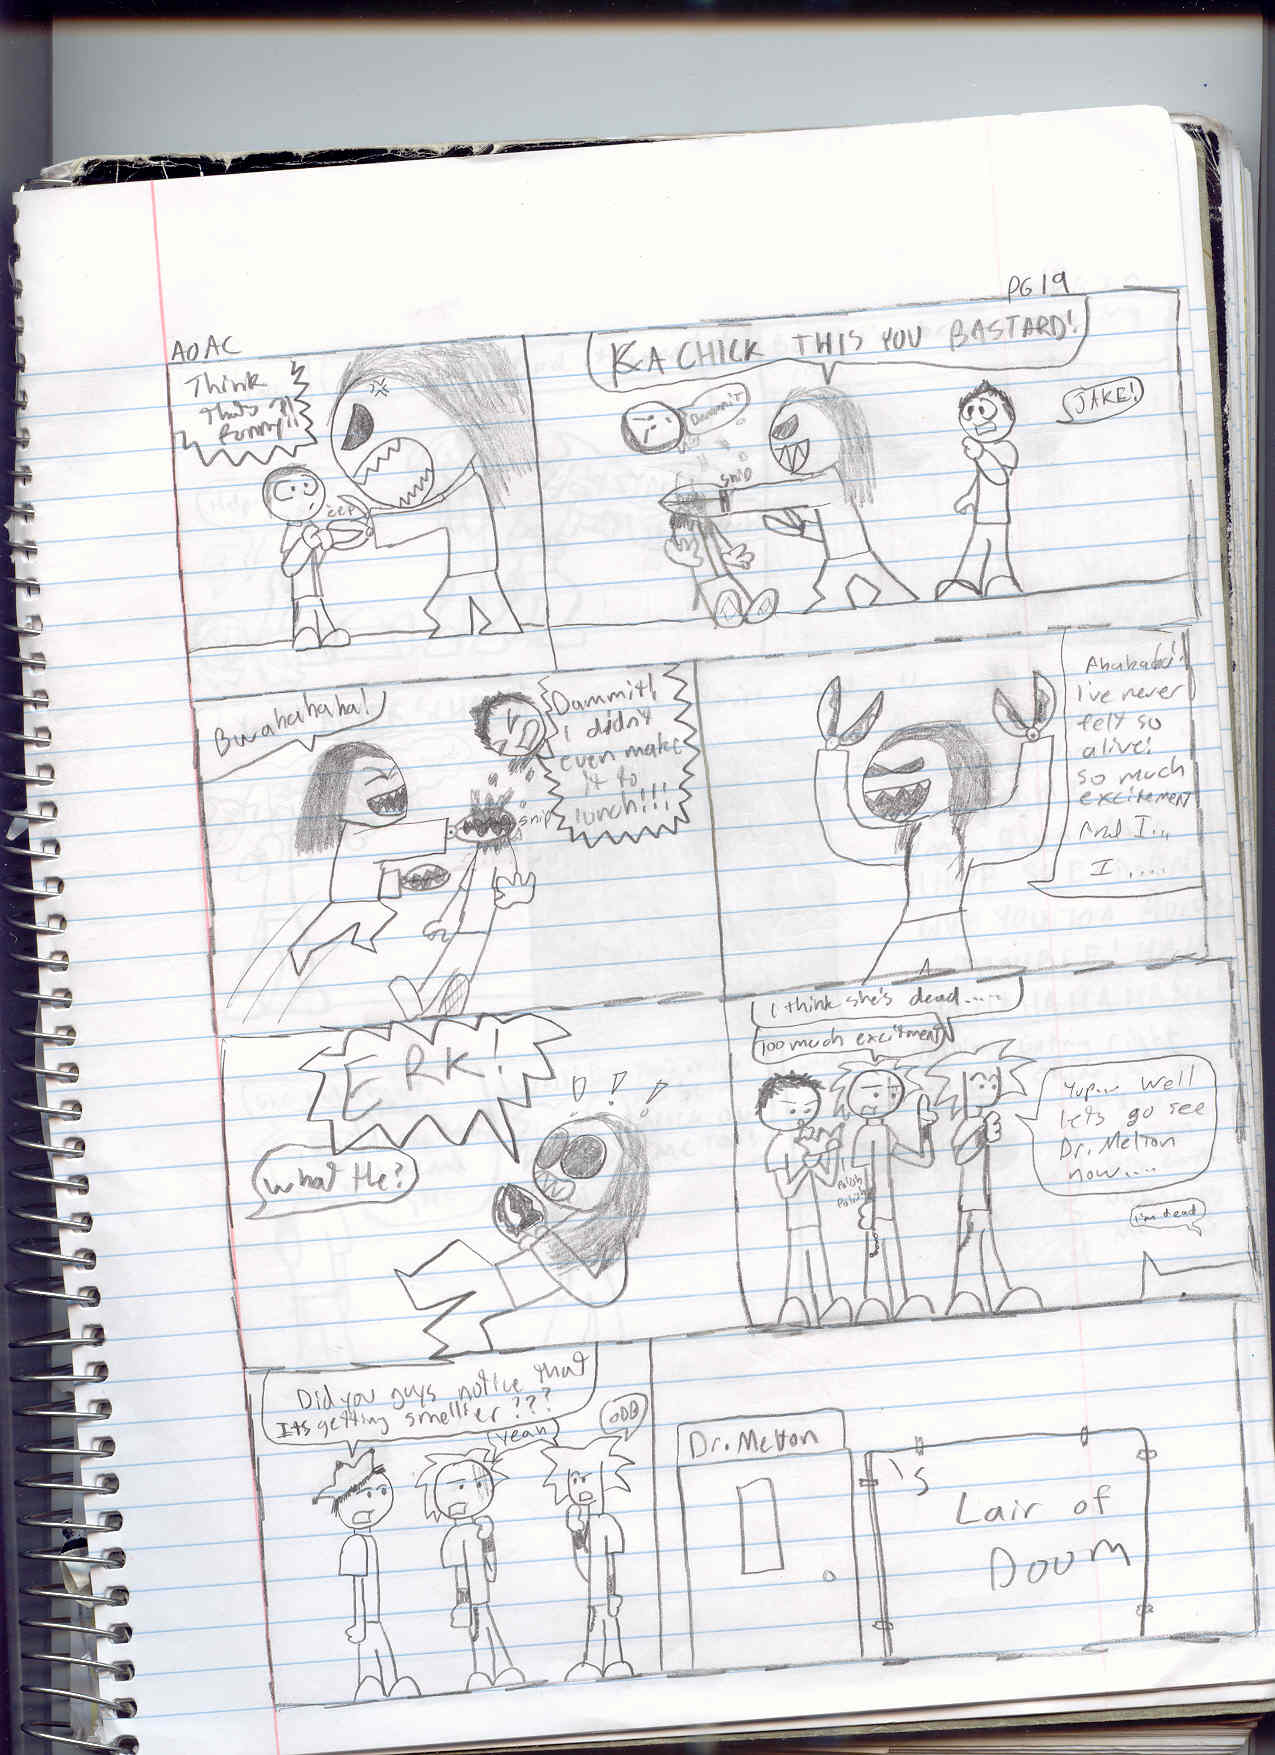 PG 19
AOAC
Think
that's
funny!!
eep
KA CHICK THIS YOU BASTARD!
Dammit!
snip
JAKE!
Bwahahaha!
Dammit!
I didn't
even make
it to
lunch!!!
snip
Ahahaha!
I've never
felt so
alive!
so much
excitement
And I...
I .....
ERK!
what the?
I think she's dead.....
too much excitment
Yup... well
lets go see
Dr. Melton
now....
Polish
Polish
I'm dead
Did you guys notice that
Its getting smellier???
Yeah
Dr. Melton
's
Lair of
DOOM